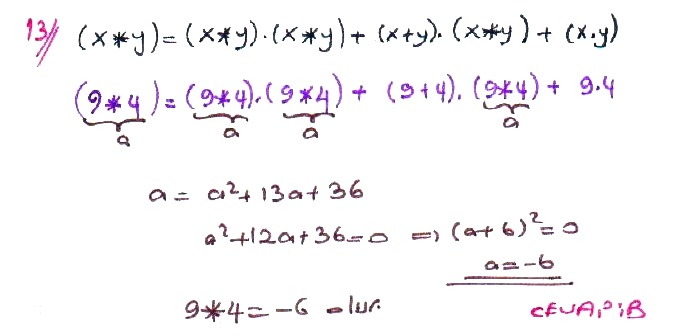 13// (x*y)=(x*y).(x*y)+(x+y).(x*y)+(x.y)
(9*4)=(9*4).(9*4)+(9+4).(9*4)+9.4
a a a a
a = a²+13a+36
a²+12a+36=0 ⇒ (a+6)²=0
a=-6
9*4=-6 olur. CEVAP:B